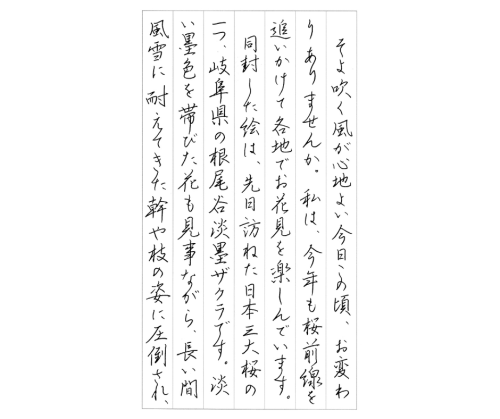 そよ吹く風が心地よい今日この頃、お変わ
りありませんか。私は、今年も桜前線を
追いかけて各地でお花見を楽しんでいます。
同封した絵は、先日訪ねた日本三大桜の
一つ、岐阜県の根尾谷淡墨ザクラです。淡
い墨色を帯びた花も見事ながら、長い間
風雪に耐えてきた幹や枝の姿に圧倒され、